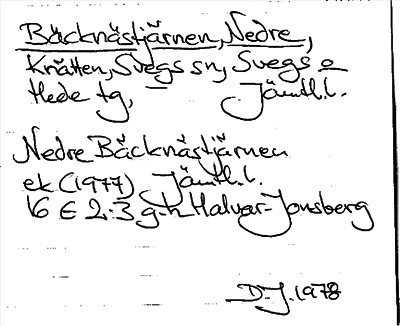 Bäcknästjärnen, Nedre,
Knätten, Svegs sn, Svegs o
Hede tg, — Jämtl.l.
Nedre Bäcknästjärnen
ek (1977) Jämtl.l.
16 E 2:3 g-h Halvar-Jonsberg
D.J. 1978